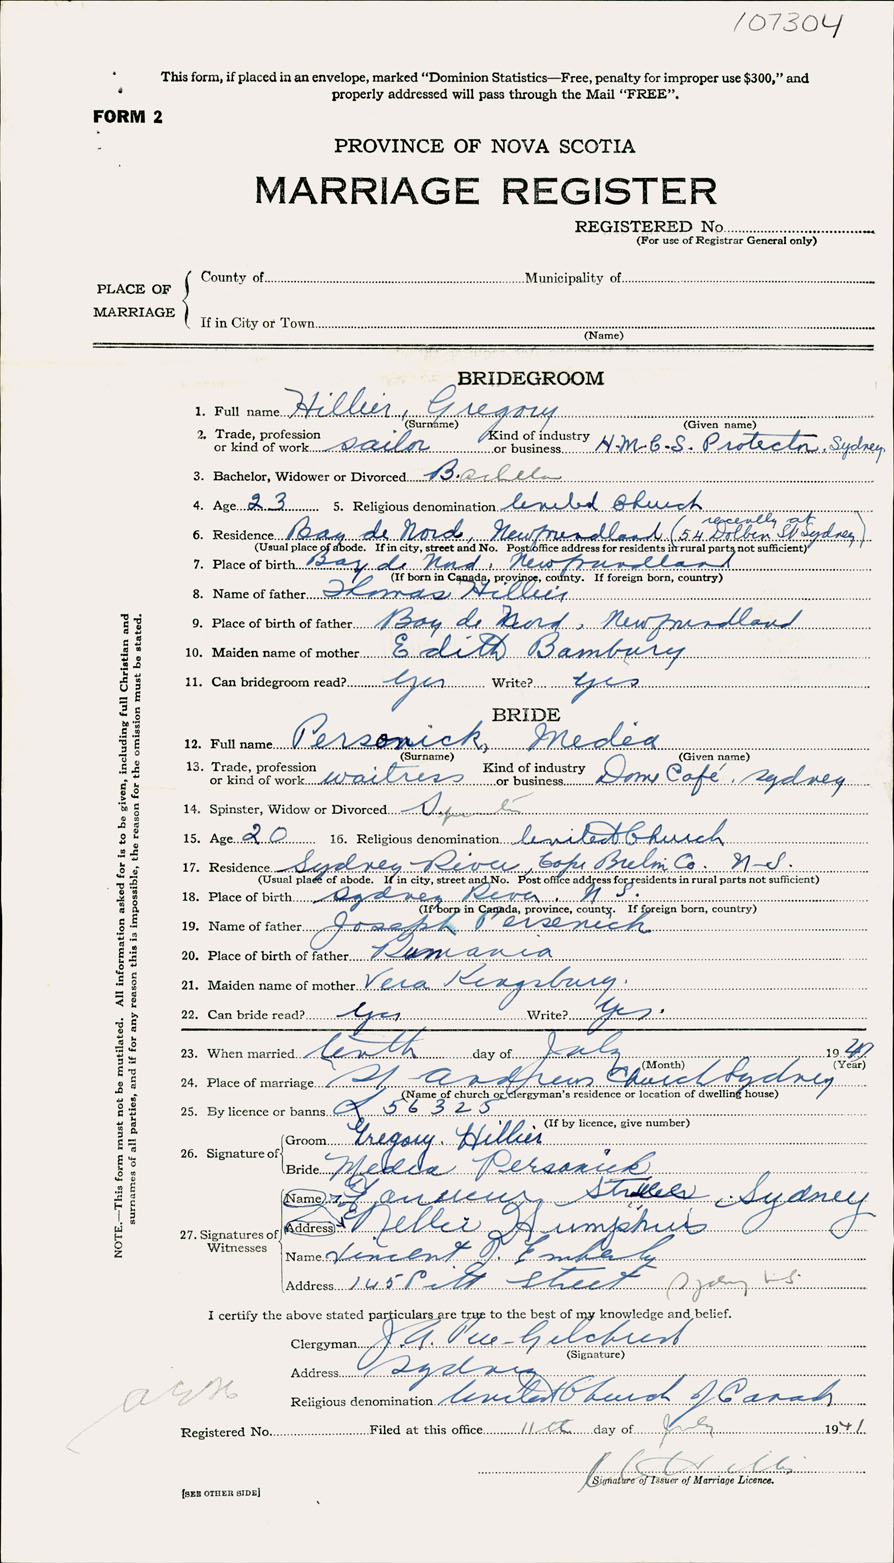 107304
This form, if placed in an envelope, marked “Dominion Statistics—Free, penalty for improper use $300,” and
properly addressed will pass through the Mail “FREE”.
FORM 2
PROVINCE OF NOVA SCOTIA
MARRIAGE REGISTER
REGISTERED No.
(For use of Registrar General only)
PLACE OF MARRIAGE
County of Municipality of
If in City or Town
(Name)
BRIDEGROOM
1. Full name Hillier, Gregory
(Surname) (Given name)
2. Trade, profession or kind of work sailor Kind of industry or business H.M.C.S. Protector, Sydney
3. Bachelor, Widower or Divorced Bachelor
4. Age 23 5. Religious denomination United Church
recently at
6. Residence Bay de Nord, Newfoundland (54 Dolbin St Sydney)
(Usual place of abode. If in city, street and No. Post office address for residents in rural parts not sufficient)
7. Place of birth Bay de Nord, Newfoundland
(If born in Canada, province, county. If foreign born, country)
8. Name of father Thomas Hillier
9. Place of birth of father Bay de Nord, Newfoundland
10. Maiden name of mother Edith Bambury
11. Can bridegroom read? Yes Write? yes
BRIDE
12. Full name Personick, Media
(Surname) (Given name)
13. Trade, profession or kind of work waitress Kind of industry or business Dome Café, Sydney
14. Spinster, Widow or Divorced Spinster
15. Age 20 16. Religious denomination United Church
17. Residence Sydney River, Cape Breton Co. N.S.
(Usual place of abode. If in city, street and No. Post office address for residents in rural parts not sufficient)
18. Place of birth Sydney River, N S.
(If born in Canada, province, county. If foreign born, country)
19. Name of father Joseph Personick
20. Place of birth of father Rumania
21. Maiden name of mother Vera Kingsbury.
22. Can bride read? Yes Write? Yes.
23. When married tenth day of July 19 41
(Month) (Year)
24. Place of marriage St Andrews Church Sydney
(Name of church or clergyman's residence or location of dwelling house)
25. By licence or banns L 56325
(If by licence, give number)
26. Signature of
Groom Gregory. Hillier
Bride Media Personick
27. Signatures of Witnesses
Name Street, Sydney
Address Nellie Humphries
Name Vincent J. Emberly
Address 145 Pitt Street Sydney N.S.
I certify the above stated particulars are true to the best of my knowledge and belief.
Clergyman J. A. Pue-Gilchrist
(Signature)
Address Sydney
Religious denomination United Church of Canada
Registered No. Filed at this office 11th day of July 1941
Signature of Issuer of Marriage Licence.
[SEE OTHER SIDE]
NOTE.—This form must not be mutilated. All information asked for is to be given, including full Christian and
surnames of all parties, and if for any reason this is impossible, the reason for the omission must be stated.